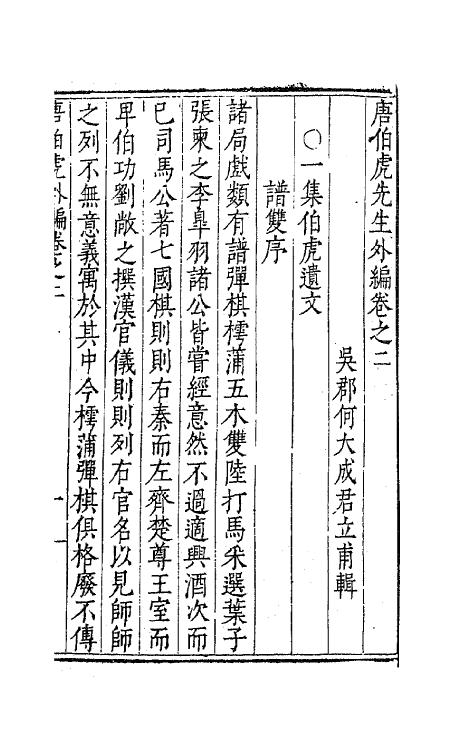 唐伯虎先生外編卷之二
吳郡何大成君立甫輯
〇一集伯虎遺文
譜雙序
諸局戲類有譜彈棋樗蒲五木雙陸打馬采選葉子
張柬之李臯羽諸公皆嘗經意然不過適興酒次而
已司馬公著七國棋則則右秦而左齊楚尊王室而
卑伯功劉敞之撰漢官儀則則列右官名以見師師
之列不無意義寓於其中今樗蒲彈棋俱格廢不傳
唐伯虎外編卷之二 一